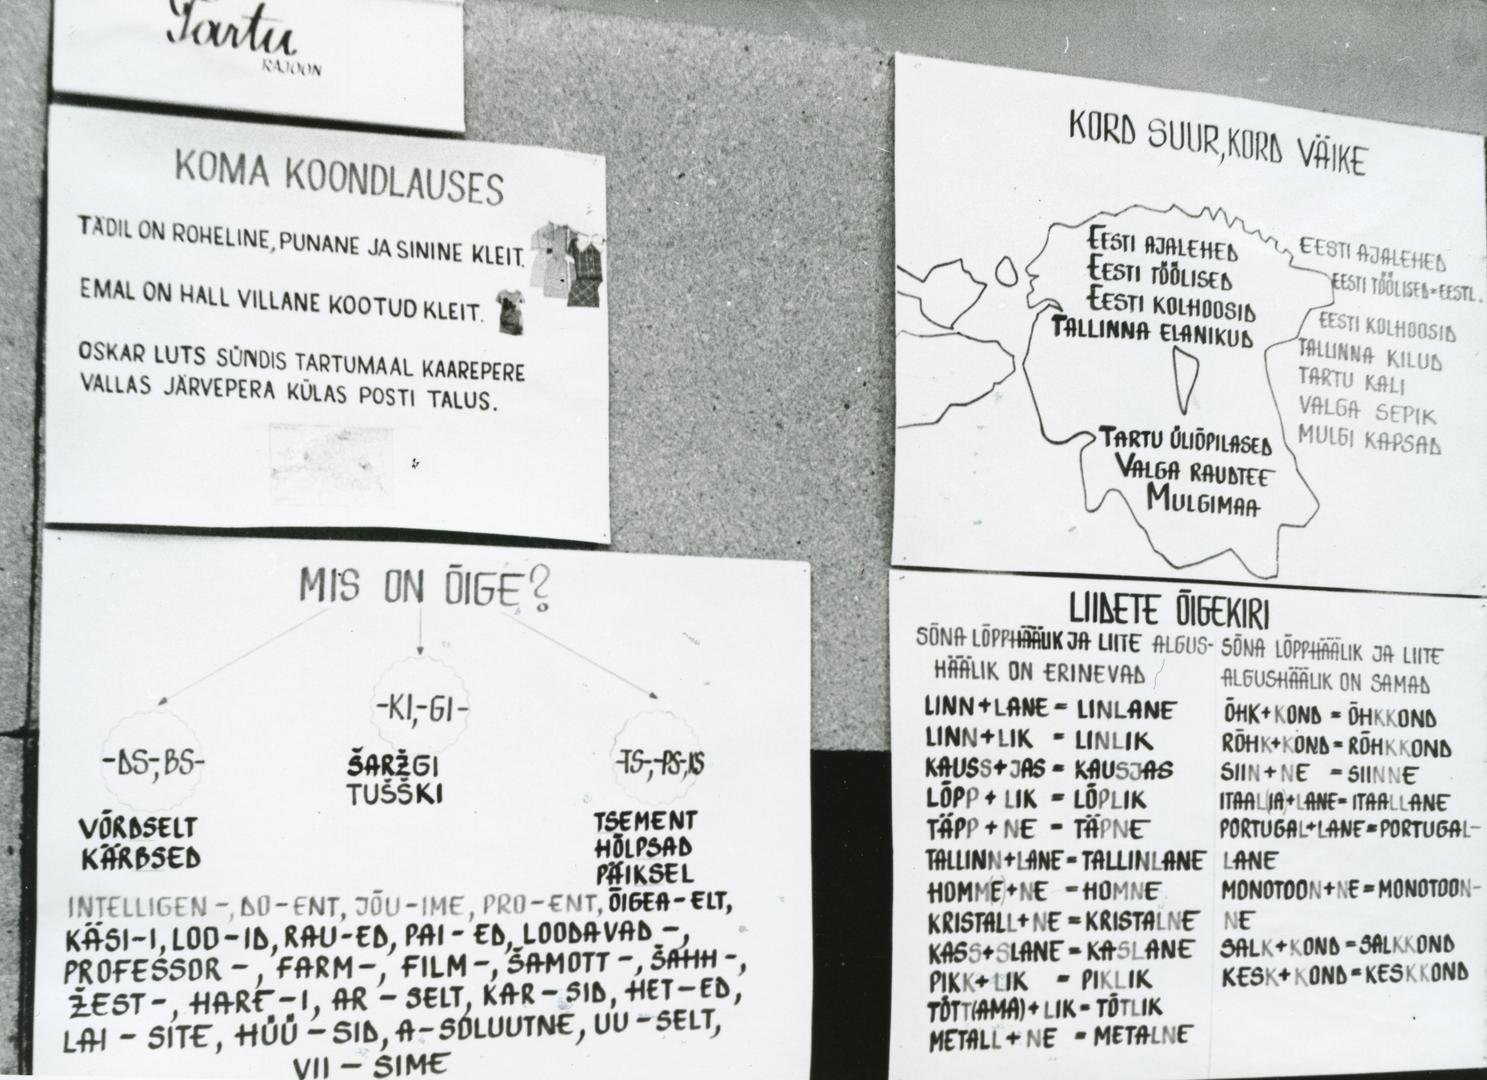 Tartu
RAJOON
KOMA KOONDLAUSES
TÄDIL ON ROHELINE, PUNANE JA SININE KLEIT.
EMAL ON HALL VILLANE KOOTUD KLEIT.
OSKAR LUTS SÜNDIS TARTUMAAL KAAREPERE
VALLAS JÄRVEPERA KÜLAS POSTI TALUS.
MIS ON ÕIGE?
-DS-, BS-
VÕRDSELT
KÄRBSED
-KI,-GI-
ŠARŽGI
TUŠŠKI
-TS-,-PS-,KS
TSEMENT
HÕLPSAD
PÄIKSEL
INTELLIGEN -, DO-ENT, JÕU-IME, PRO-ENT, ÕIGEA-ELT,
KÄSI-I, LOO-ID, RAU-ED, PAI-ED, LOODAVAD -,
PROFESSOR -, FARM-, FILM-, ŠAMOTT-, ŠAHH-,
ŽEST-, HARF-I, AR - SELT, KAR-SID, HET-ED,
LAI-SITE, HÜÜ-SID, A-SOLUUTNE, UU-SELT,
VII - SIME
KORD SUUR, KORD VÄIKE
EESTI AJALEHED
EESTI TÖÖLISED
EESTI KOLHOOSID
TALLINNA ELANIKUD
TARTU ÜLIÕPILASED
VALGA RAUDTEE
MULGIMAA
EESTI AJALEHED
EESTI TÖÖLISED=EESTL.
EESTI KOLHOOSID
TALLINNA KILUD
TARTU KALI
VALGA SEPIK
MULGI KAPSAD
LIIDETE ÕIGEKIRI
SÕNA LÕPPHÄÄLIK JA LIITE ALGUS-
HÄÄLIK ON ERINEVAD
LINN+LANE = LINLANE
LINN+LIK = LINLIK
KAUSS+JAS = KAUSJAS
LÕPP + LIK = LÕPLIK
TÄPP + NE = TÄPNE
TALLINN+LANE=TALLINLANE
HOMM(E)+NE =HOMNE
KRISTALL+NE = KRISTALNE
KASS+SLANE = KASLANE
PIKK+LIK = PIKLIK
TÕTT(AMA)+LIK=TÕTLIK
METALL+NE = METALNE
SÕNA LÕPPHÄÄLIK JA LIITE
ALGUSHÄÄLIK ON SAMAD
ÕHK+KOND = ÕHKKOND
RÕHK+KOND=RÕHKKOND
SIIN+NE =SIINNE
ITAAL(IA)+LANE=ITAALLANE
PORTUGAL+LANE=PORTUGAL-
LANE
MONOTOON+NE=MONOTOON-
NE
SALK+KOND=SALKKOND
KESK+KOND=KESKKOND